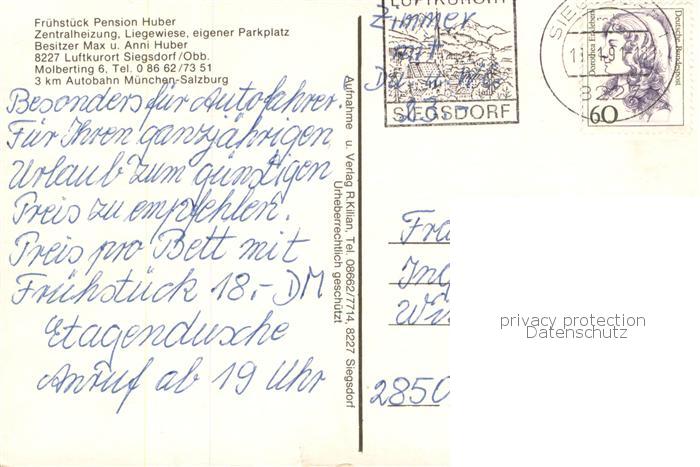 Frühstück Pension Huber
Zentralheizung, Liegewiese, eigener Parkplatz
Besitzer Max u. Anni Huber
8227 Luftkurort Siegsdorf/Obb.
Molberting 6, Tel. 0 86 62/73 51
3 km Autobahn München-Salzburg
Besonders für Autofahrer.
Für Ihren ganzjährigen
Urlaub zum günstigen
Preis zu empfehlen.
Preis pro Bett mit
Frühstück 18.- DM
Etagendusche
Anruf ab 19 Uhr
Aufnahme u. Verlag R. Kilian, Tel. 08662/7714, 8227 Siegsdorf
Urheberrechtlich geschützt
LUFTKURORT
SIEGSDORF
Zimmer
mit
23.-
Dorothea Erxleben
Deutsche Bundespost
60
2850
privacy protection
Datenschutz